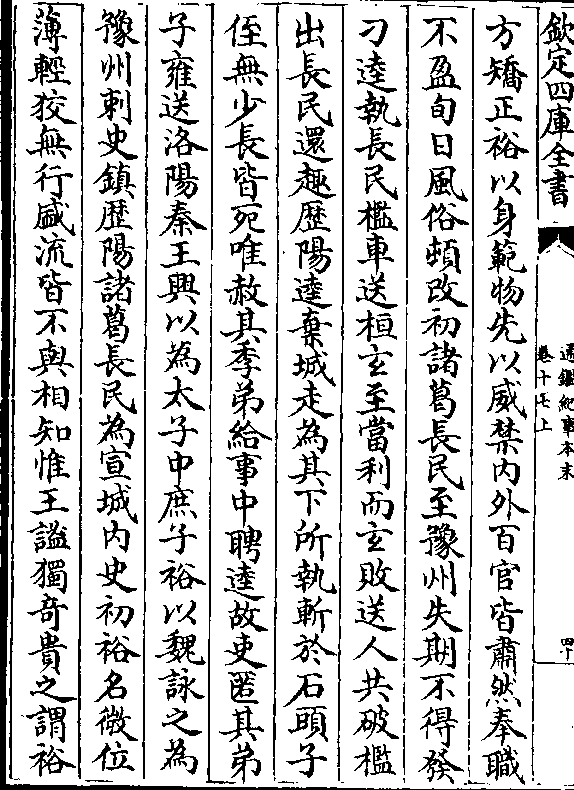 欽定四庫全書
通鑑紀事本末
卷十七上
四十
方矯正裕以身範物先以威禁内外百官皆肅然奉職
不盈旬日風俗頓改初諸葛長民至豫州失期不得發
刁逵執長民檻車送桓玄至當利而玄敗送人共破檻
出長民還趣歴陽逵棄城走為其下所執斬於石頭子
侄無少長皆死唯赦其季弟給事中聘逵故吏匿其弟
子雍送洛陽秦王興以為太子中庶子裕以魏詠之為
豫州刺史鎮歴陽諸葛長民為宣城内史初裕名微位
薄輕狡無行盛流皆不與相知惟王謐獨竒貴之謂裕